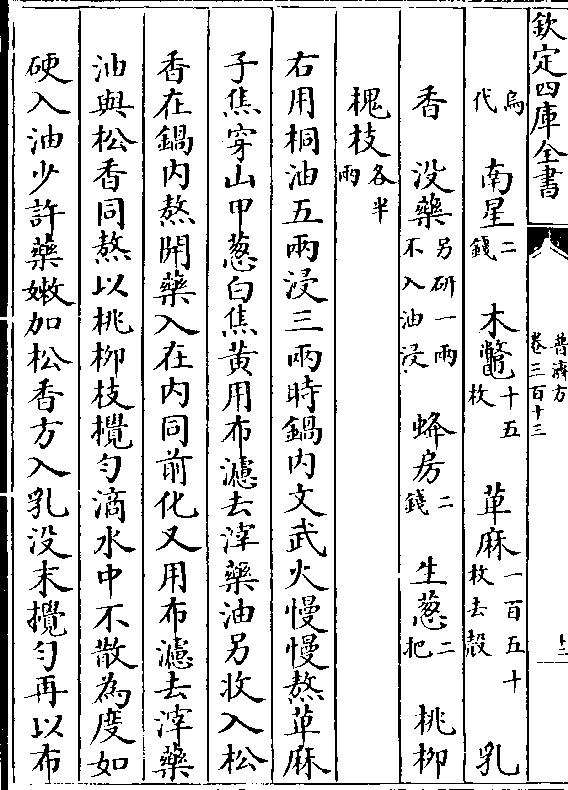 欽定四庫全書
普濟方
卷三百十三
烏代 南星二錢 木鼈十五枚 萆麻一百五十枚去殼 乳
香 没藥另研一兩不入油浸 蜂房二錢 生葱二把 桃柳
槐枝各半兩
右用桐油五兩浸三兩時鍋内文武火慢慢熬萆麻
子焦穿山甲葱白焦黄用布濾去滓藥油另收入松
香在鍋内熬開藥入在内同前化又用布濾去滓藥
油與松香同熬以桃柳枝攪匀滴水中不散為度如
硬入油少許藥嫩加松香方入乳没末攪匀再以布